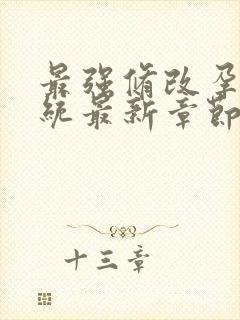 最强修改孕
统最新章节
十三章